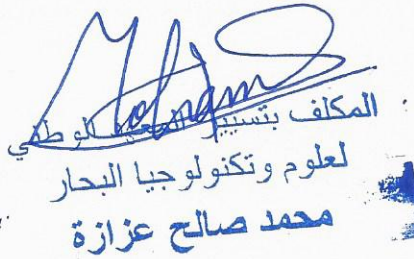 المكلف بتسيير المعهد الوطني
لعلوم وتكنولوجيا البحار
محمد صالح عزازة